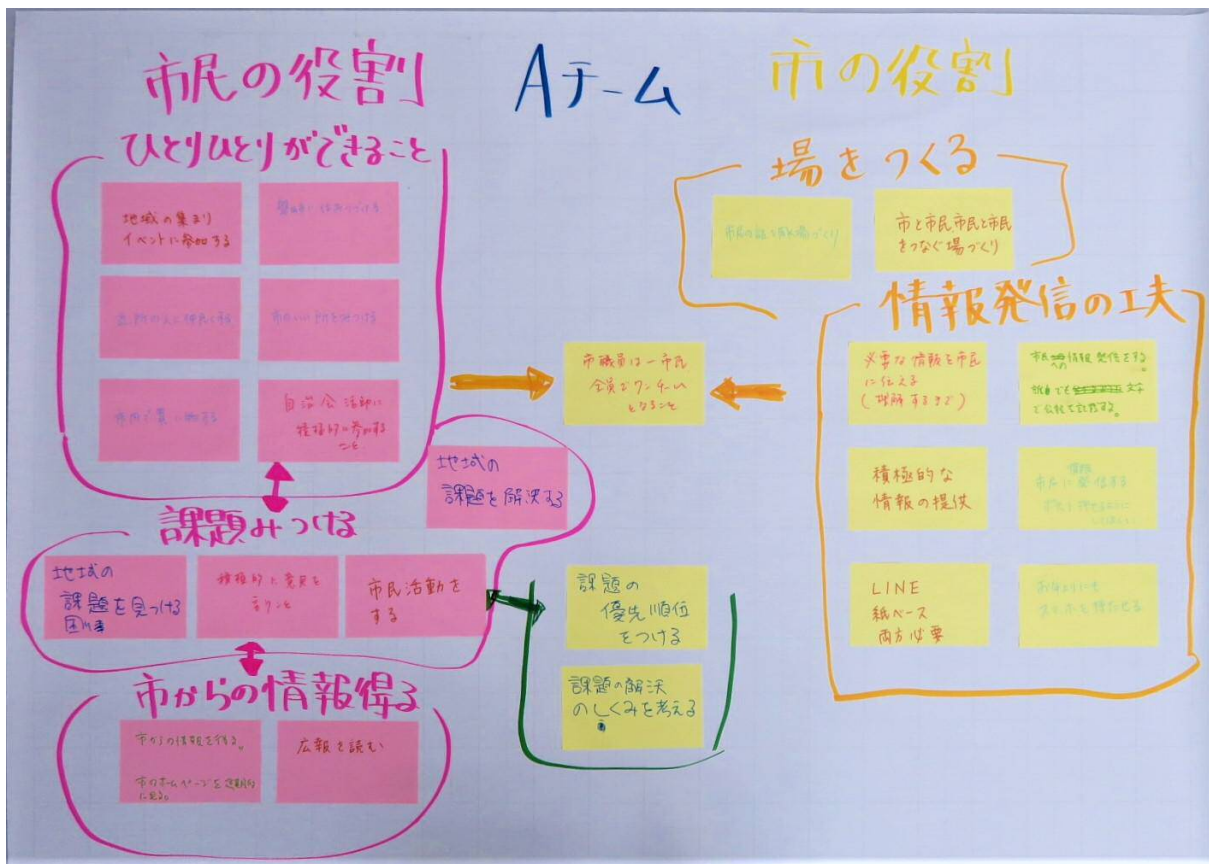 市民の役割
Aチーム
市の役割
ひとりひとりができること
地域の集まり
イベントに参加する
近所の人と仲良くする
市内で買い物する
自治会活動に
積極的に参加する
こと
課題みつける
地域の
課題を解決する
地域の
課題を見つける
困り事
積極的に意見を
言うこと
市民活動を
する
市からの情報得る
市からの情報を得る。
市のホームページを定期的
に見る。
広報を読む
市職員は一市民
全員がワンチーム
となること
課題の
優先順位
をつける
課題の解決
のしくみを考える
場をつくる
市民の話を聞く場づくり
市と市民、市民と市民
をつなぐ場づくり
情報発信の工夫
必要な情報を市民
に伝える
(理解するまで)
市民への情報発信をする
文字
で広報を記載する。
積極的な
情報の提供
情報
市民に発信する
LINE
紙ベース
両方必要
お年よりにも
スマホを持たせる